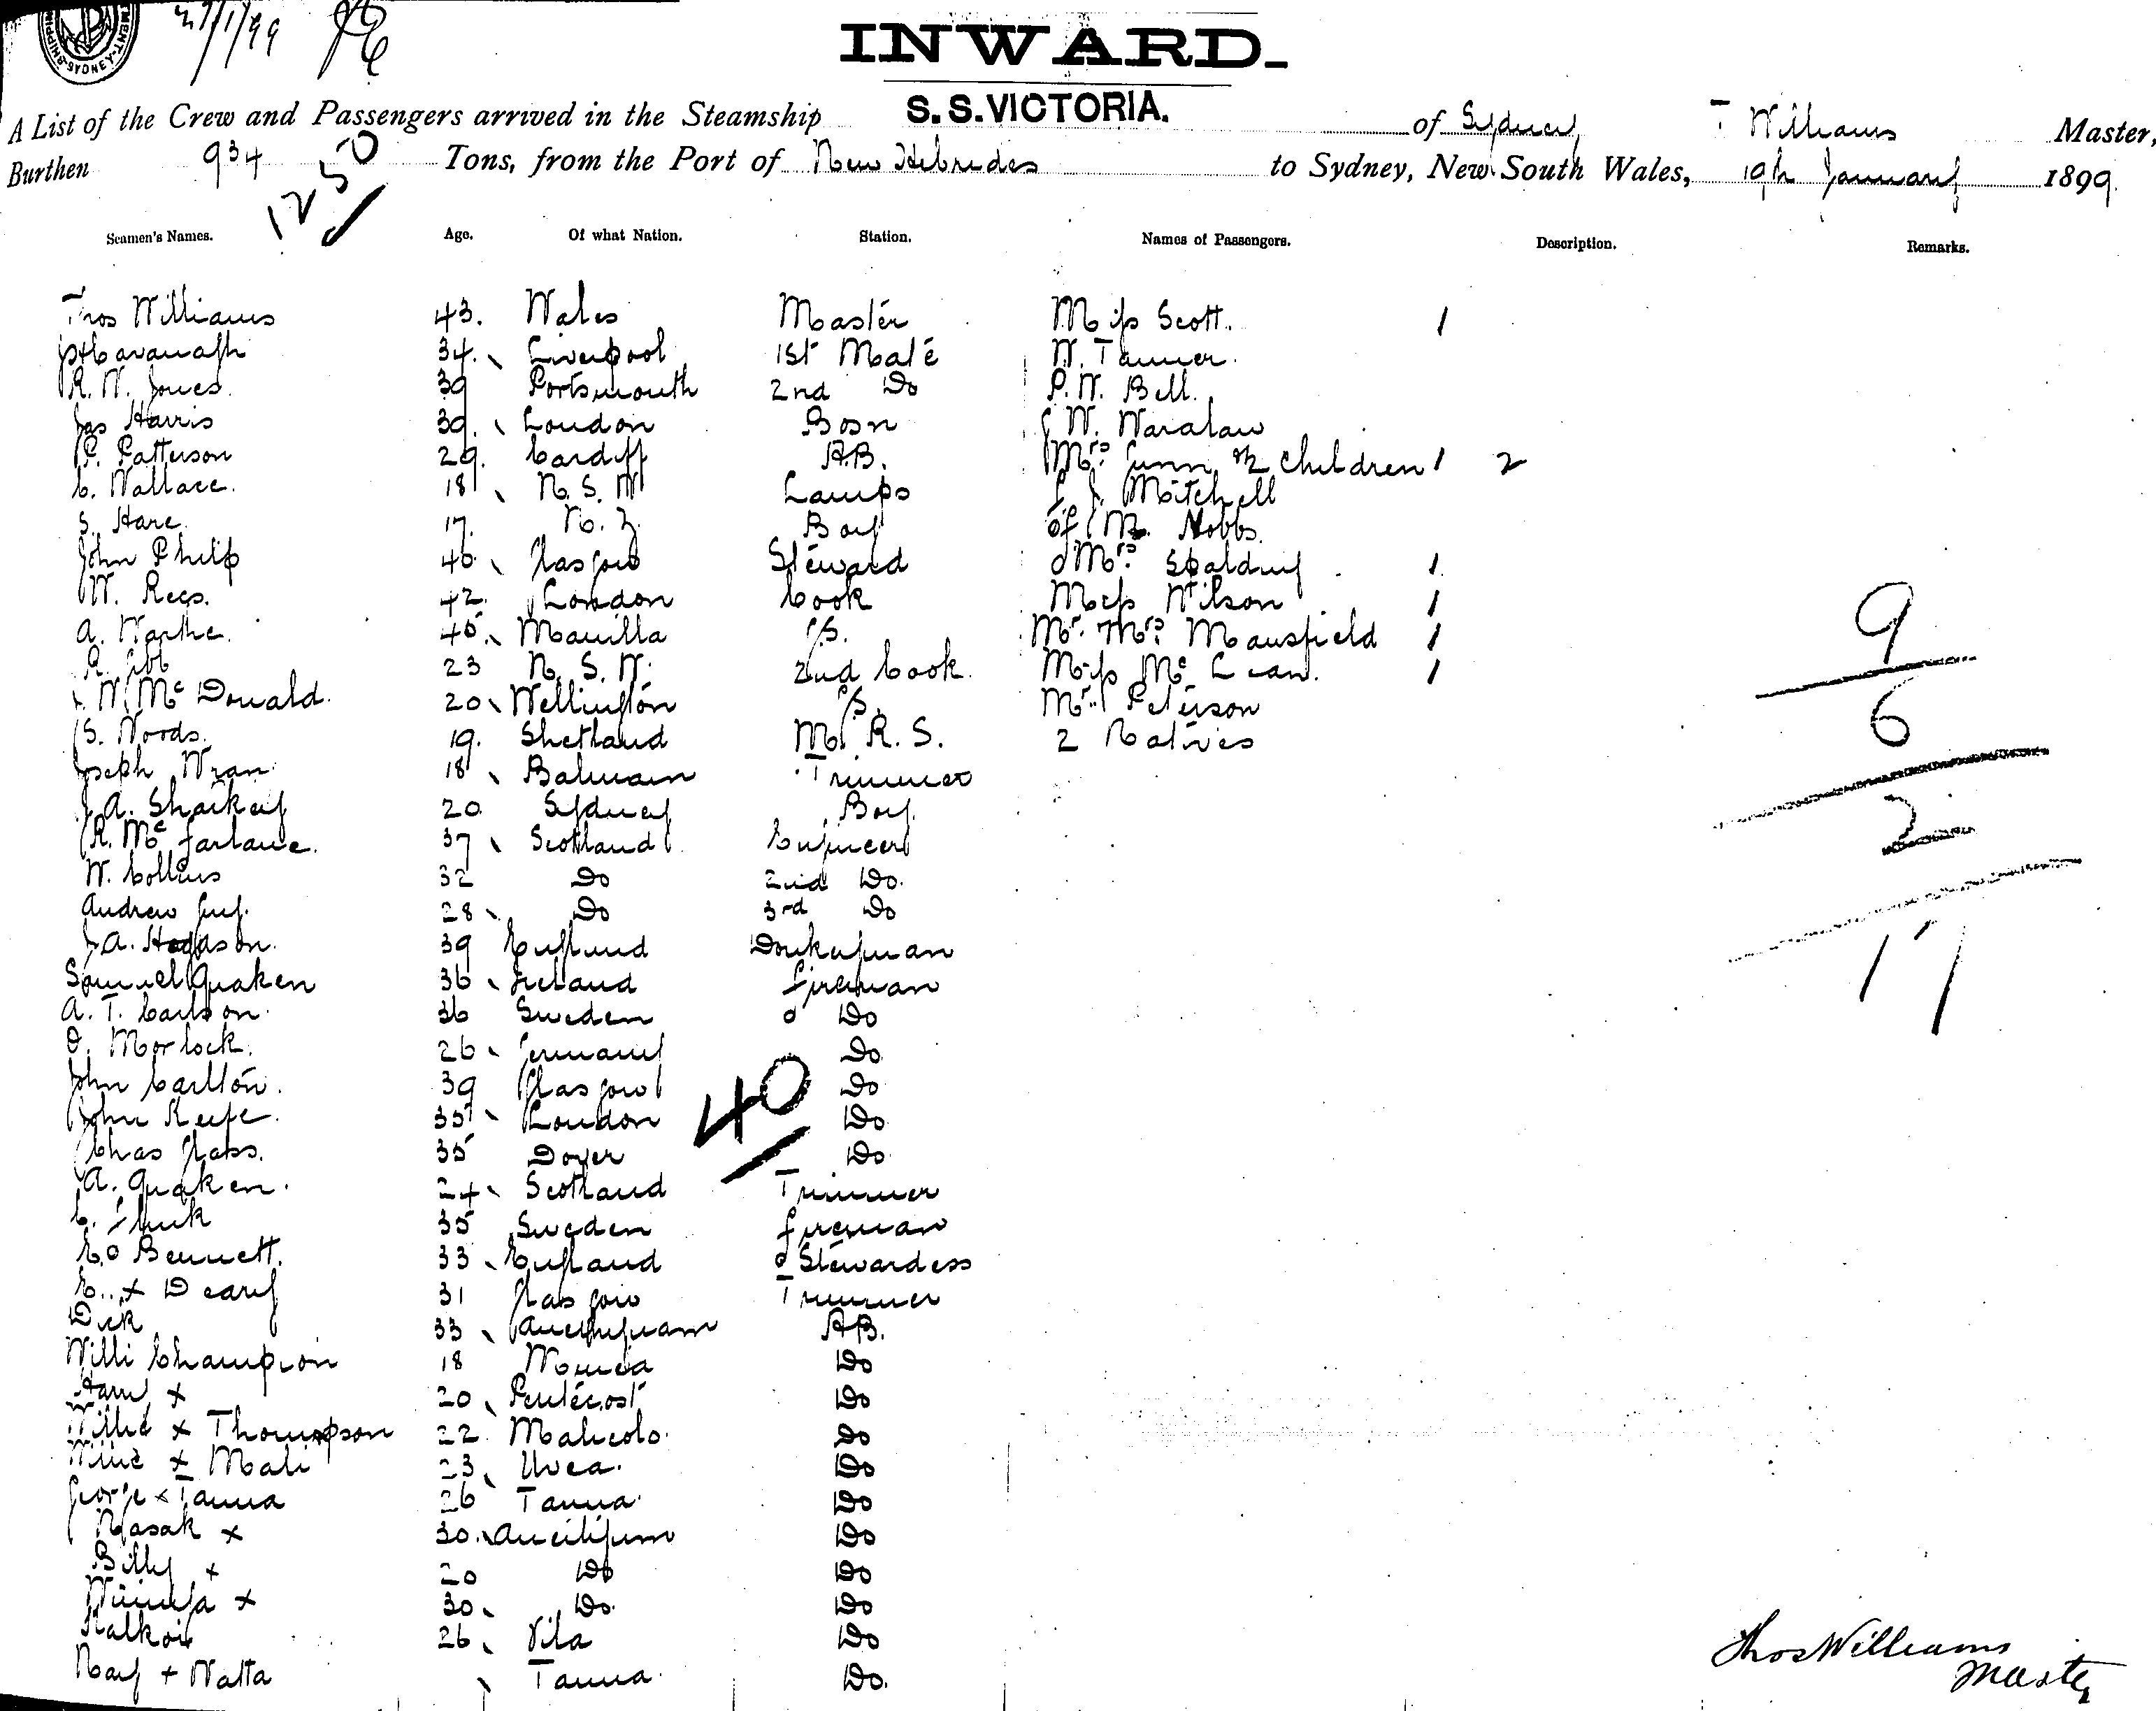 27/1/99
INWARD.
A List of the Crew and Passengers arrived in the Steamship S.S. VICTORIA. of Sydney T Williams Master,
Burthen 934 Tons, from the Port of New Hebrides to Sydney, New South Wales, 19th January 1899.
1250
Seamen's Names. Age. Of what Nation. Station. Names of Passengers. Description. Remarks.
Thos Williams 43. Wales Master Miss Scott. 1
Cavanagh 34. Liverpool 1st Mate W. Tanner.
R. W. Jones. 39 Portsmouth 2nd Do P. W. Bell.
Jas Harris 39. London Bosn W.
P. Patterson 29. Cardiff A.B. Mrs Gunn & 2 Children 1 2
C. Wallace. 18 N. S. W Lamps Mitchell
S. Hare 17. N. Z. Boy Nobbs.
John Philp 40. Glasgow Steward Mrs Spalding 1
W. Rees. 42. London Cook Miss Wilson 1
A. 45. Manilla P/S. Mr. Mrs Mansfield 1
R. Gibb 23 N. S. W. 2nd Cook. Miss Mc Lean. 1
W. Mc Donald. 20 Wellington P/S. Mr. Peterson
S. Woods. 19. Shetland M. R. S. 2 Natives
Joseph Wran 18 Balmain Trimmer
J. A. Sharkey 20. Sydney Boy.
R. Mc Farlane. 37 Scotland Engineer
W. Collins 32 Do 2nd Do.
Andrew Guy. 28 Do 3rd Do
J. A. Hodgson. 39 England Donkeyman
Samuel Quaken 36 Ireland Fireman
A. T. Carlson. 36 Sweden Do
O. Morlock. 26 Germany Do
John Carlton. 39 Glasgow Do
John Keefe. 35 London Do
Chas Glass. 35 Dover Do
A. Quaken. 24 Scotland Trimmer
C. 35 Sweden Fireman
E. Bennett. 33 England Stewardess
E. x Deary 31 Glasgow Trimmer
Dick 33 A.B.
Willi Champion 18 Do
Harry x 20 Pentecost Do
Willie x Thompson 22 Malicolo Do
Willie x Mali 23 Uvea. Do
George x Tanna 26 Tanna. Do
Nasak x 30. Aneityum Do
Billy x 20 Do Do
x 30. Do. Do
Kalkoi 26 Vila Do
+ Natta Tanna. Do.
40
9
6
2
17
Thos Williams
Master